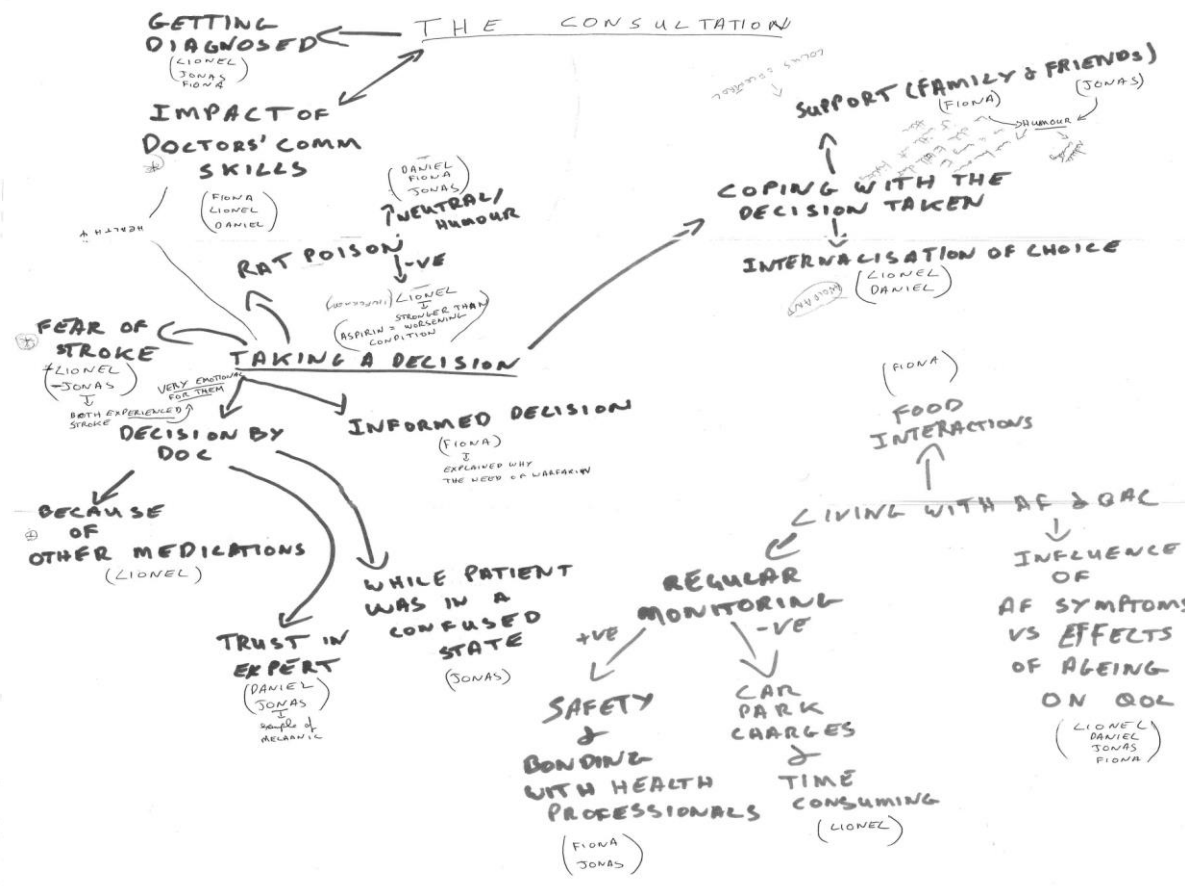 THE CONSULTATION
GETTING
DIAGNOSED
(LIONEL
JONAS
FIONA)
IMPACT OF
DOCTORS' COMM
SKILLS
(FIONA
LIONEL
DANIEL)
HEALTH
(DANIEL
FIONA
JONAS)
NEUTRAL/
HUMOUR
RAT POISON
-VE
LIONEL
STRONGER THAN
(ASPIRIN = WORSENING
CONDITION)
FEAR OF
STROKE
(LIONEL
JONAS)
BOTH EXPERIENCED
STROKE
VERY EMOTIONAL
FOR THEM
TAKING A DECISION
DECISION BY
DOC
INFORMED DECISION
(FIONA)
EXPLAINED WHY
THE NEED OF WARFARIN
BECAUSE
OF
OTHER MEDICATIONS
(LIONEL)
TRUST IN
EXPERT
(DANIEL
JONAS)
example of
MECHANIC
WHILE PATIENT
WAS IN A
CONFUSED
STATE
(JONAS)
LOCUS CONTROL
SUPPORT (FAMILY & FRIENDS)
(FIONA)
(JONAS)
HUMOUR
COPING WITH THE
DECISION TAKEN
INTERNALISATION OF CHOICE
(LIONEL
DANIEL)
(FIONA)
FOOD
INTERACTIONS
LIVING WITH AF & OAC
REGULAR
MONITORING
+VE
-VE
SAFETY
&
BONDING
WITH HEALTH
PROFESSIONALS
(FIONA
JONAS)
CAR
PARK
CHARGES
&
TIME
CONSUMING
(LIONEL)
INFLUENCE
OF
AF SYMPTOMS
VS EFFECTS
OF AGEING
ON QOL
(LIONEL
DANIEL
JONAS
FIONA)